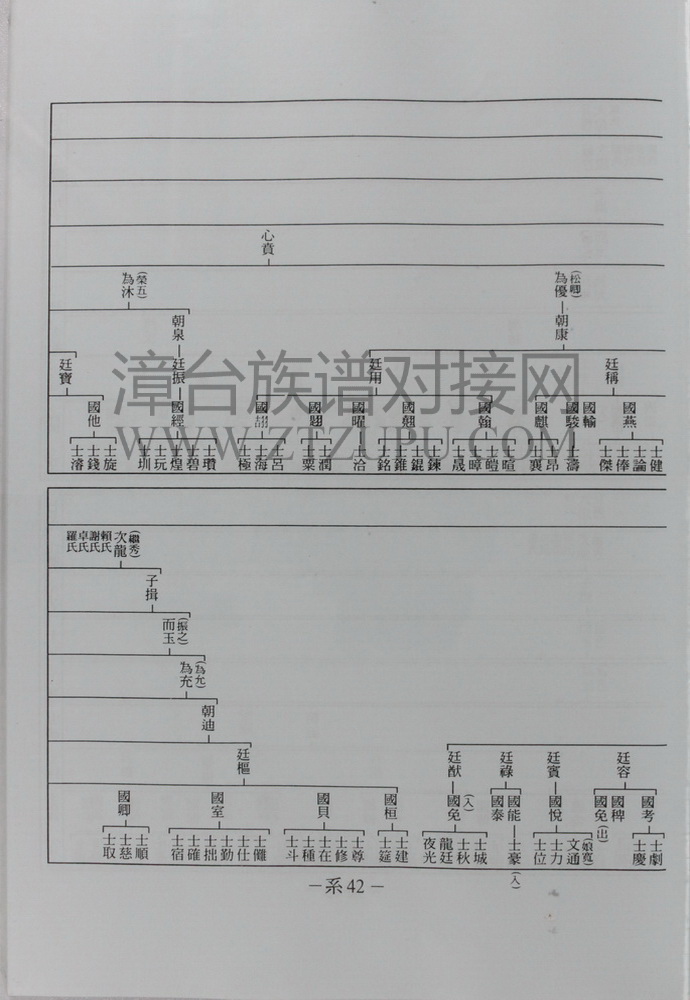 心賁
(松卿)
為優
朝康
(榮五)
為沐
朝泉
廷稱
廷用
廷振
廷寶
國燕
國輸
國駿
國麒
國翰
國翹
國曜
國翅
國翮
國經
國他
士健
士論
士俸
士傑
士濤
士昂
士襄
士暄
士皚
士暲
士晟
士鍊
士錕
士錐
士銘
士洽
士潤
士粟
士呂
士海
士極
士瓚
士碧
士煌
士玩
士圳
士旋
士錢
士濬
(繼秀)
次龍
賴氏
謝氏
卓氏
羅氏
子揖
(振之)
而玉
(為允)
為充
朝迪
廷容
廷賓
廷祿
廷猷
廷樞
國考
國稗
國免(出)
國悅
國能
國泰
(入)
國免
國桓
國貝
國室
國卿
士劇
士慶
(娘寬)
文通
士力
士位
士豪(入)
士城
士秋
龍廷
夜光
士建
士筵
士尊
士修
士在
士種
士斗
士儺
士仕
士勤
士拙
士確
士宿
士順
士慈
士取
－系42－
漳台族谱对接网
WWW.ZTZUPU.COM